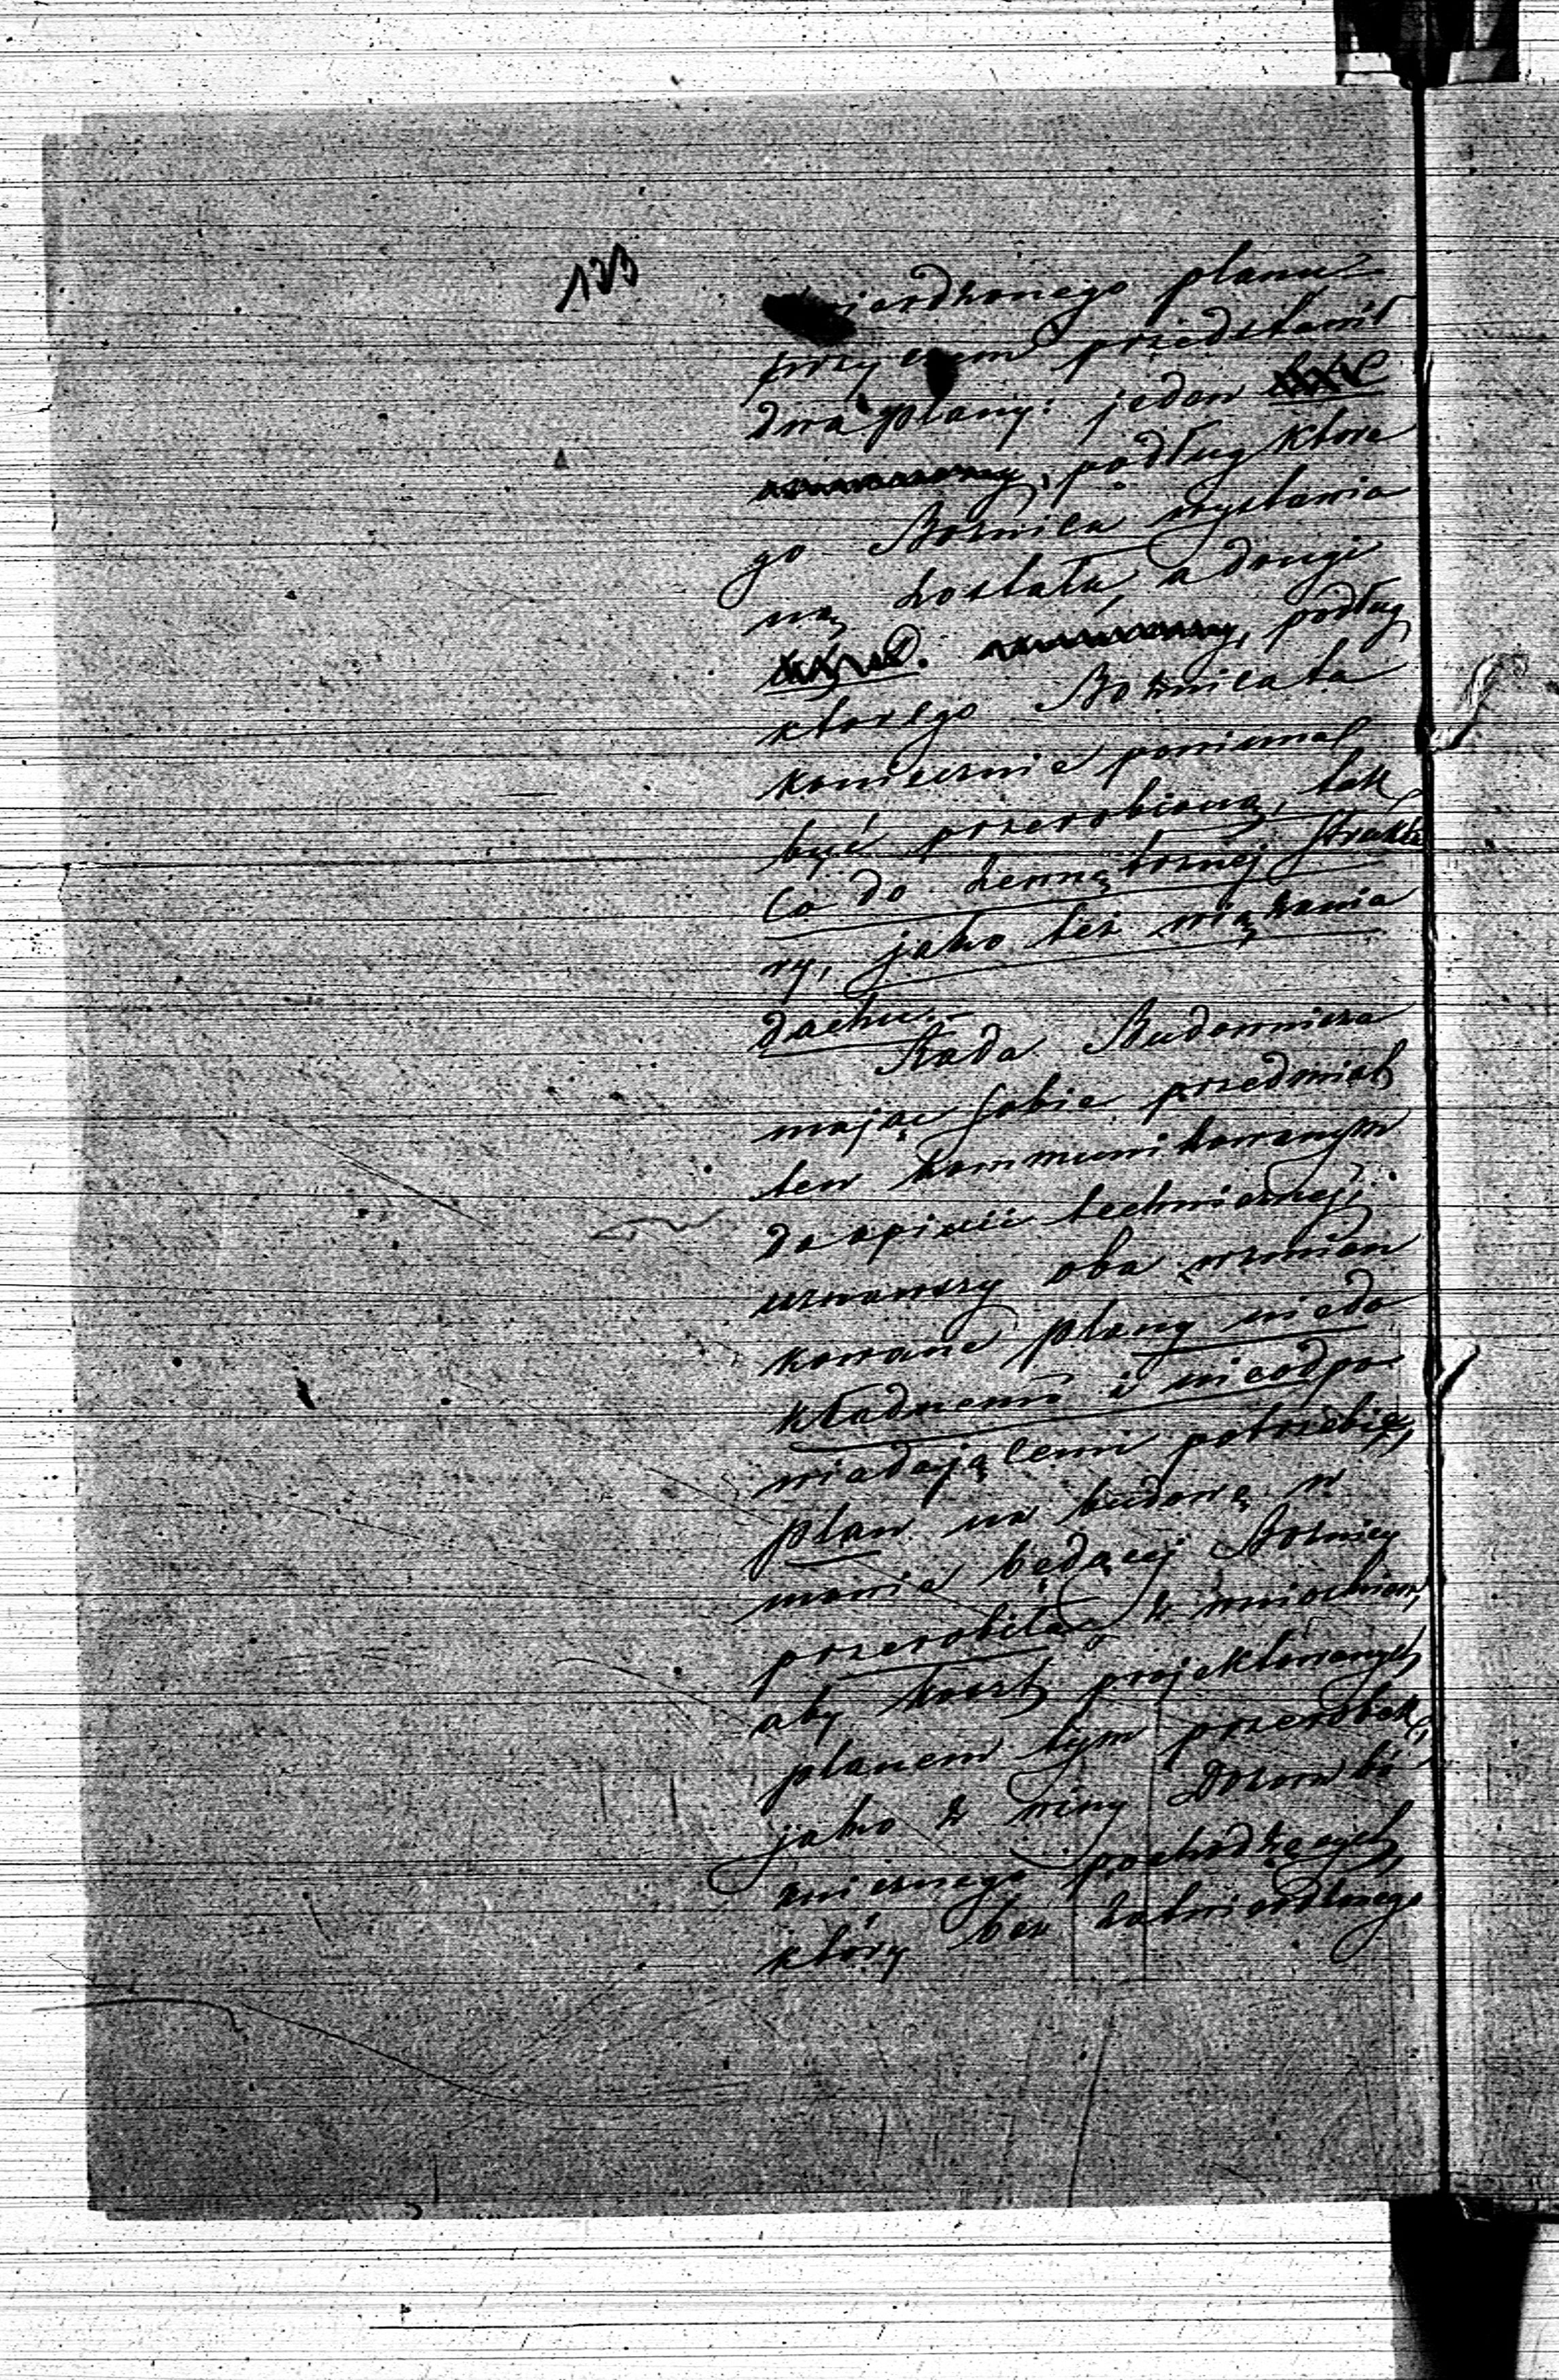 133
wierdzonego planu
przyczem przedstawił
dwa plany: jeden
podług które
go Bożnica wystawio
ną została, a drugi
podług
którego Bożnicata
koniecznie powinna
być przerobioną, tak
Co do zewnętrznej struktu
ry, jako też wiązania
dachu.-
Rada Budownicza
mając sobie przedmiot
ten kommunikowanym
do opinii technicznej,
uznawszy oba wzmian
kowane plany niedo
kładnemi i nieodpo
wiadającemi potrzebie,
plan na budowę w
mowie będącej Bożnicy
przerobiła z wnioskiem,
aby koszt projektowanych
planem tym przeróbek,
jako z winy Dozoru bó
żniczego pochodzących,
który bez zatwierdzonego